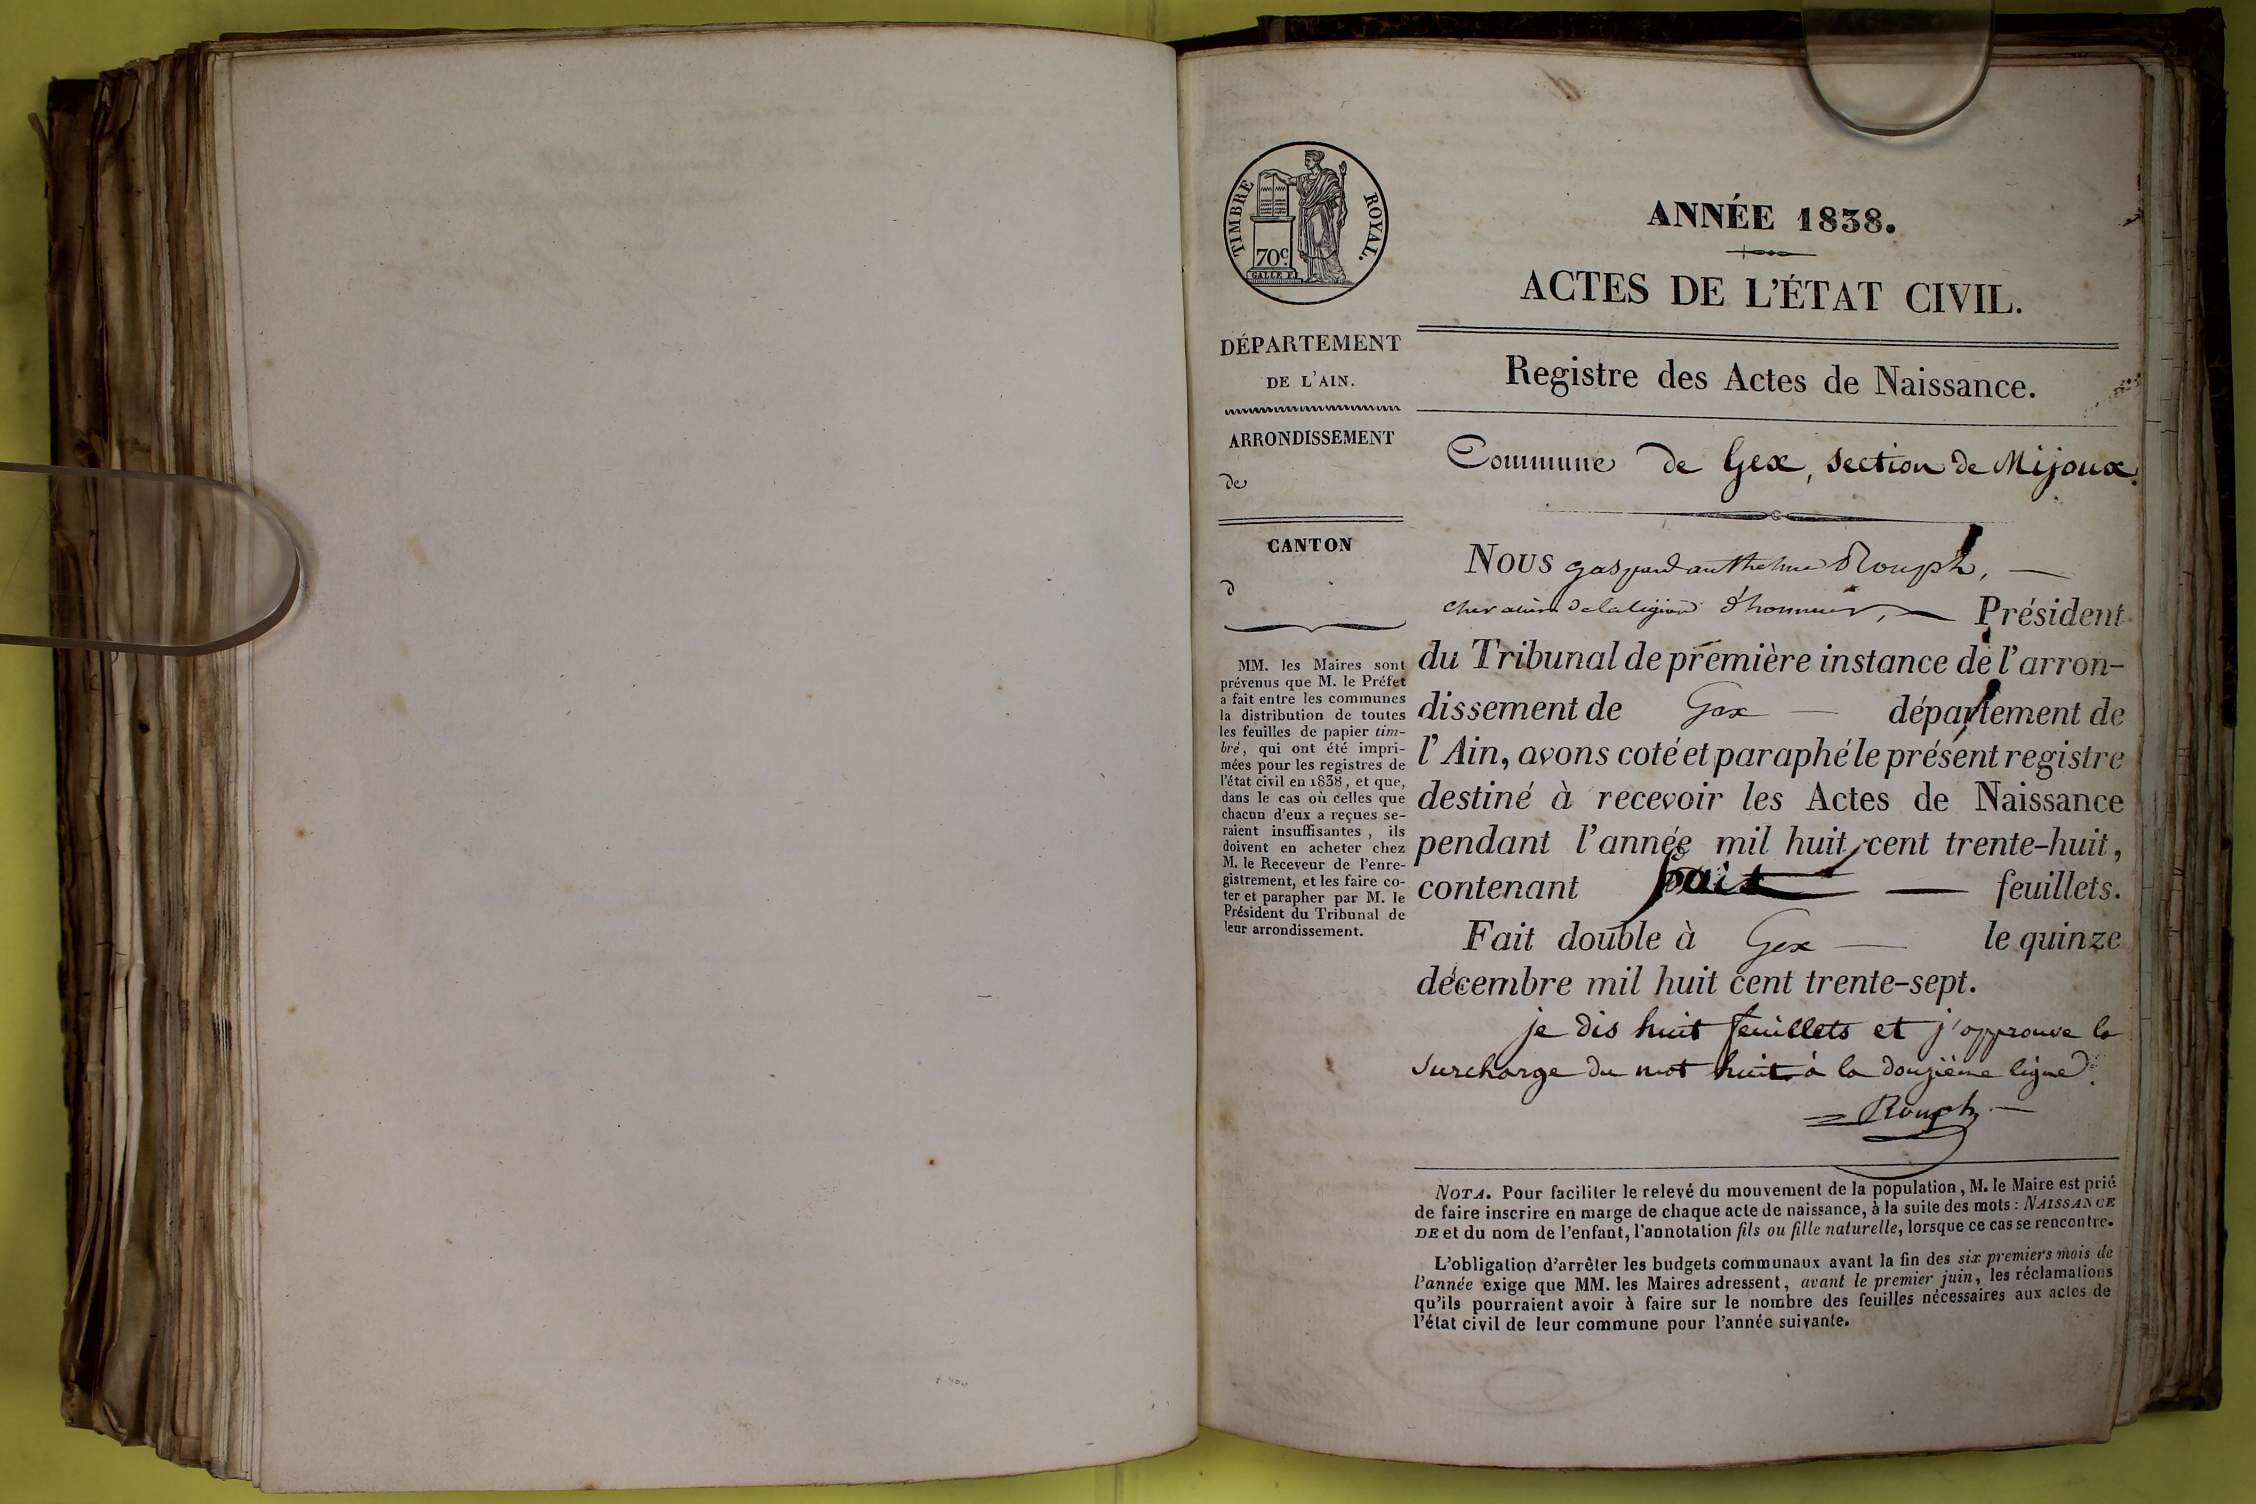 TIMBRE ROYAL.
70c.
GALLE F.
DÉPARTEMENT
DE L'AIN.
ARRONDISSEMENT
de
CANTON
d
MM. les Maires sont
prévenus que M. le Préfet
a fait entre les communes
la distribution de toutes
les feuilles de papier tim-
bré, qui ont été impri-
mées pour les registres de
l'état civil en 1838, et que,
dans le cas où celles que
chacun d'eux a reçues se-
raient insuffisantes, ils
doivent en acheter chez
M. le Receveur de l'enre-
gistrement, et les faire co-
ter et parapher par M. le
Président du Tribunal de
leur arrondissement.
ANNÉE 1838.
ACTES DE L'ÉTAT CIVIL.
Registre des Actes de Naissance.
Commune de Gex, section de Mijoux.
NOUS gaspard anthelme Rouph,
chevalier de la légion d'honneur, Président
du Tribunal de première instance de l'arron-
dissement de Gex département de
l'Ain, avons coté et paraphé le présent registre
destiné à recevoir les Actes de Naissance
pendant l'année mil huit cent trente-huit,
contenant huit feuillets.
Fait double à Gex le quinze
décembre mil huit cent trente-sept.
je dis huit feuillets et j'approuve la
surcharge du mot huit à la douzième ligne.
Rouph
NOTA. Pour faciliter le relevé du mouvement de la population, M. le Maire est prié
de faire inscrire en marge de chaque acte de naissance, à la suite des mots : NAISSANCE
DE et du nom de l'enfant, l'annotation fils ou fille naturelle, lorsque ce cas se rencontre.
L'obligation d'arrêter les budgets communaux avant la fin des six premiers mois de
l'année exige que MM. les Maires adressent, avant le premier juin, les réclamations
qu'ils pourraient avoir à faire sur le nombre des feuilles nécessaires aux actes de
l'état civil de leur commune pour l'année suivante.